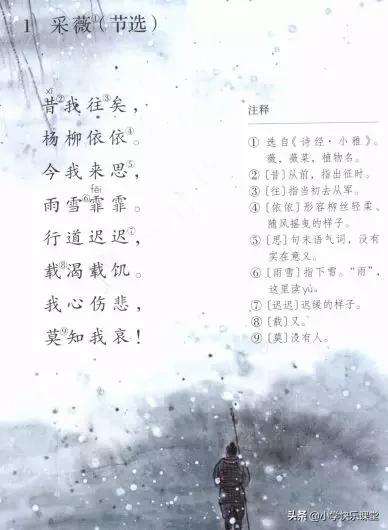 1 采薇①(节选)
xī
昔②我往③矣,
杨柳依依④。
今我来思⑤,
fēi
雨雪⑥霏霏。
行道迟迟⑦,
载⑧渴载饥。
我心伤悲,
莫⑨知我哀!
注释
① 选自《诗经·小雅》。
薇,薇菜,植物名。
②〔昔〕从前,指出征时。
③〔往〕指当初去从军。
④〔依依〕形容柳丝轻柔、
随风摇曳的样子。
⑤〔思〕句末语气词,没有
实在意义。
⑥〔雨雪〕指下雪。“雨”,
这里读yù。
⑦〔迟迟〕迟缓的样子。
⑧〔载〕又。
⑨〔莫〕没有人。
头条 @小学快乐课堂